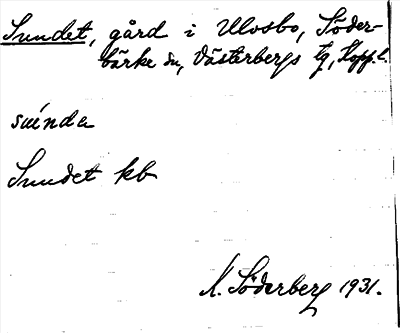 Sundet, gård i Ulvsbo, Söder-
bärke sn, Västerbergs tg, Kopp. l.
suénda
Sundet kb
N. Söderberg 1931.